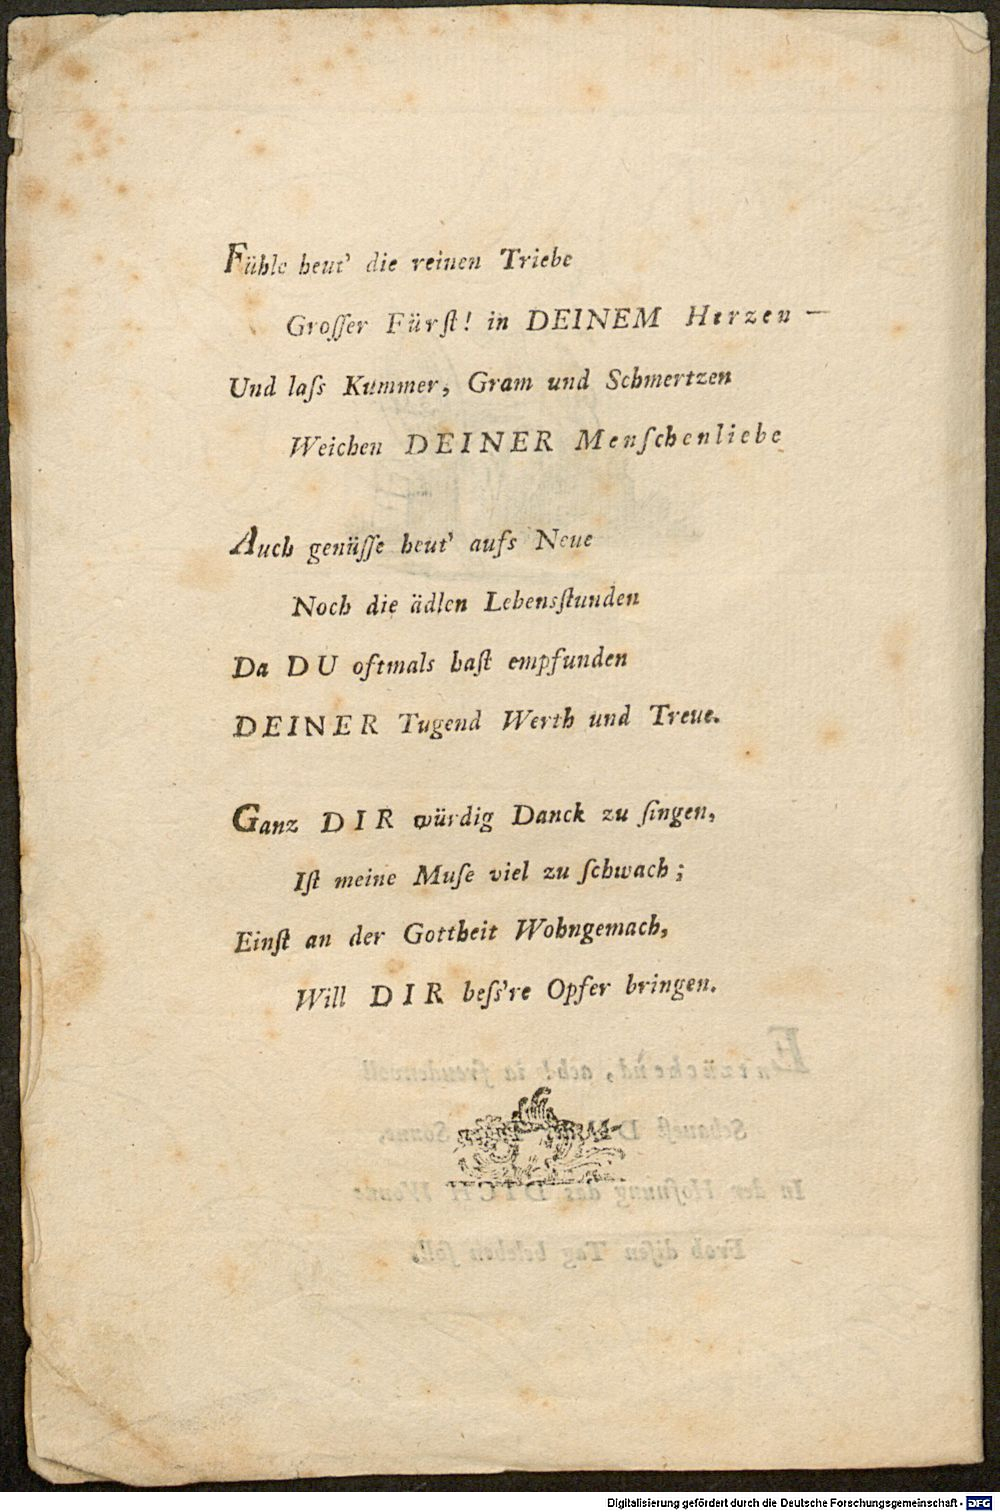 Fühle heut' die reinen Triebe
Groſſer Fürſt! in DEINEM Herzen —
Und laſs Kummer, Gram und Schmertzen
Weichen DEINER Menſchenliebe
Auch genüſſe heut' aufs Neue
Noch die ädlen Lebensſtunden
Da DU oftmals haſt empfunden
DEINER Tugend Werth und Treue.
Ganz DIR würdig Danck zu ſingen,
Iſt meine Muſe viel zu ſchwach;
Einſt an der Gottheit Wohngemach,
Will DIR beſs're Opfer bringen.
Entzückend, ach! in freudenvoll
Schaueſt D Sonne,
In der Hofnung das DICH Wonne
Froh diſen Tag beleben ſoll.
Digitalisierung gefördert durch die Deutsche Forschungsgemeinschaft - DFG